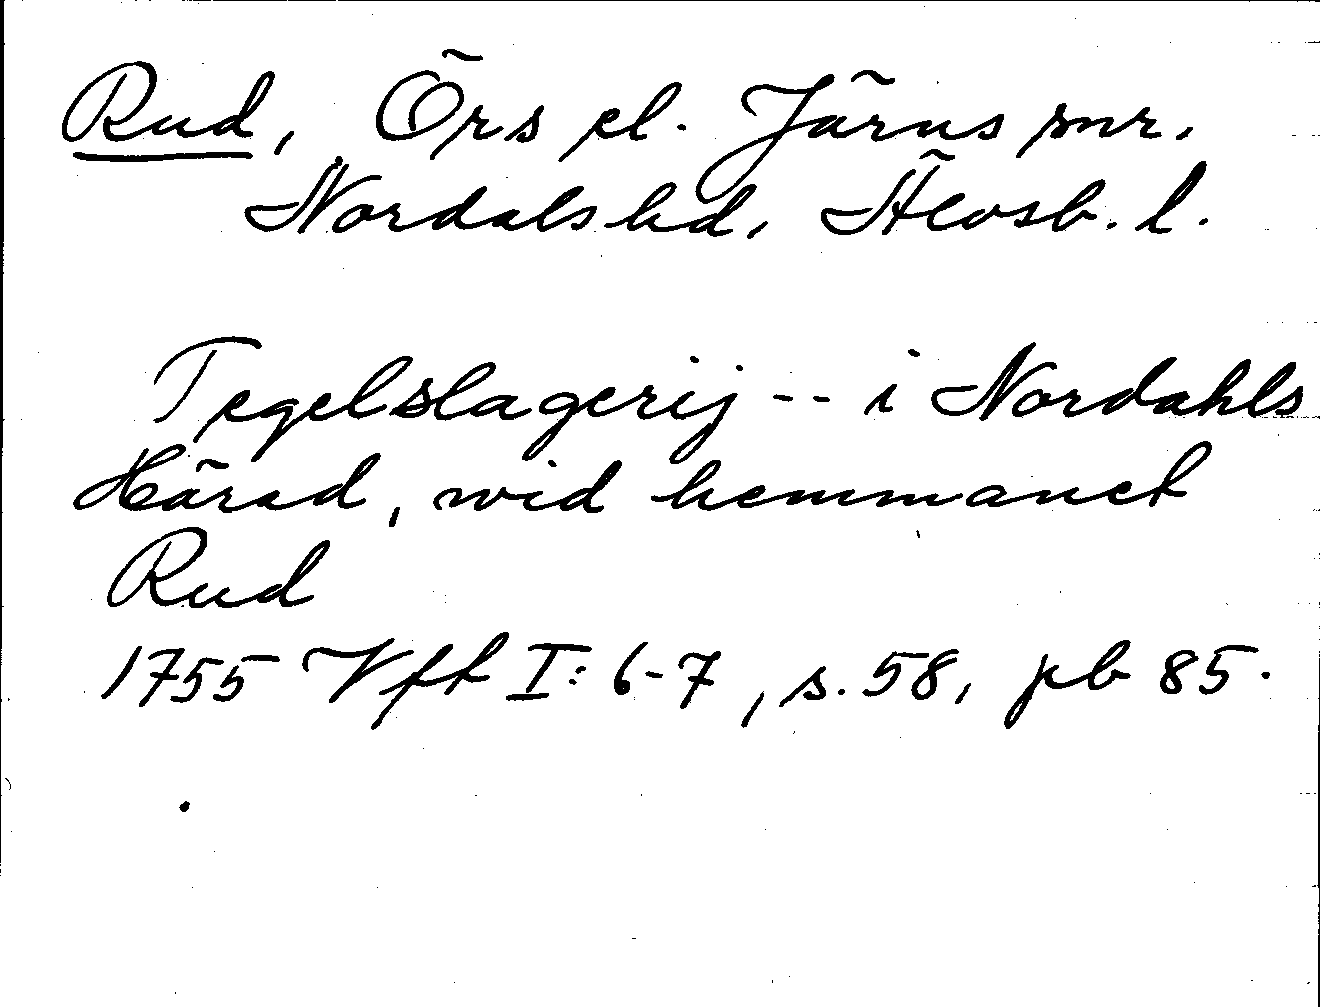 Rud, Örs el. Järns snr.
Nordals hd, Älvsb. l.
Tegelslagerij -- i Nordahls
Härad, wid hemmanet
Rud
1755 Vft I: 6-7, s. 58, pb 85.